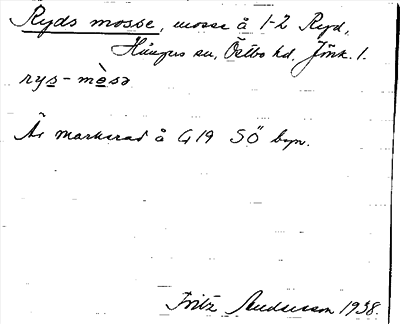 Ryds mosse, mosse å 1-2 Ryd,
Hånger sn, Östbo hd. Jönk. l.
rys-mòsə
Är markerad å G19 SÖ byn.
Fritz Andersson 1938.